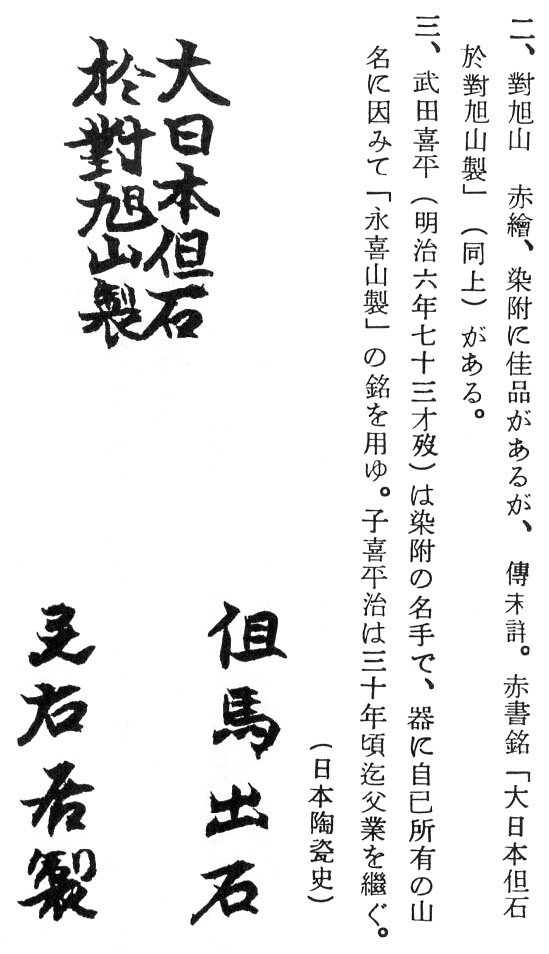 二、對旭山　赤繪、染附に佳品があるが、傳未詳。赤書銘「大日本但石
於對旭山製」（同上）がある。
三、武田喜平（明治六年七十三才歿）は染附の名手で、器に自已所有の山
名に因みて「永喜山製」の銘を用ゆ。子喜平治は三十年頃迄父業を繼ぐ。
（日本陶瓷史）
大日本但石
於對旭山製
但馬出石
右居製